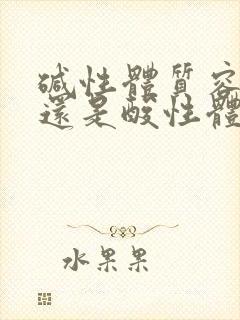 碱性體質容
還是酸性體
水果果